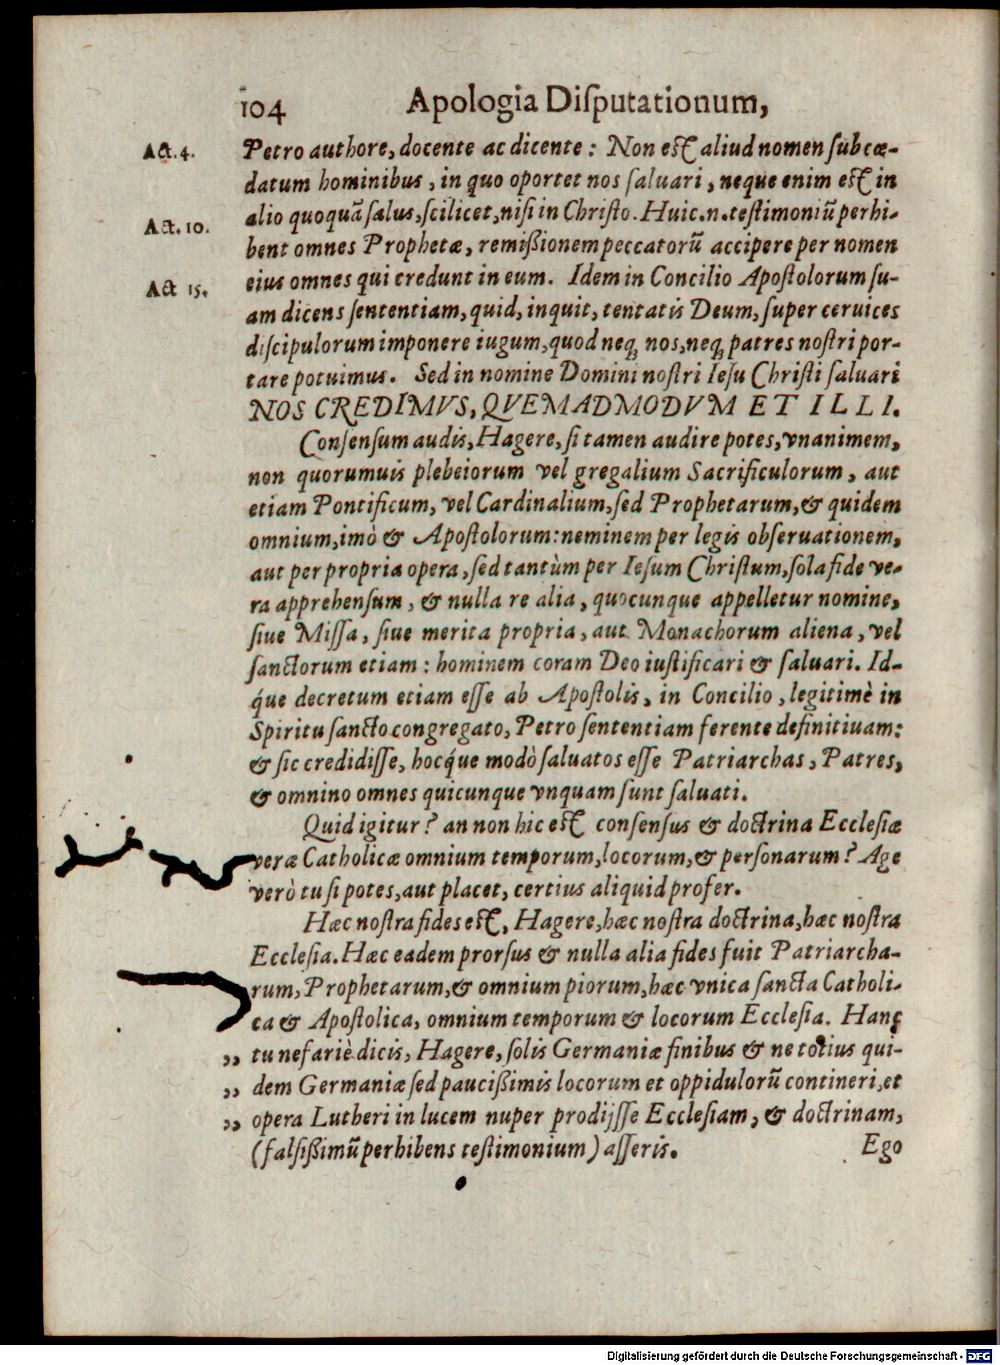 104 Apologia Diſputationum,
Act. 4. Petro authore, docente ac dicente: Non eſt aliud nomen ſub cæ-
datum hominibus, in quo oportet nos ſaluari, neque enim eſt in
alio quoquã ſalus, ſcilicet, niſi in Chriſto. Huic .n. teſtimoniũ perhi-
Act. 10. bent omnes Prophetæ, remißionem peccatorũ accipere per nomen
eius omnes qui credunt in eum. Idem in Concilio Apoſtolorum ſu-
Act 15. am dicens ſententiam, quid, inquit, tentatis Deum, ſuper ceruices
diſcipulorum imponere iugum, quod neq; nos, neq; patres noſtri por-
tare potuimus. Sed in nomine Domini noſtri Ieſu Chriſti ſaluari
NOS CREDIMVS, QVEMADMODVM ET ILLI.
Conſenſum audis, Hagere, ſi tamen audire potes, vnanimem,
non quorumuis plebeiorum vel gregalium Sacrificulorum, aut
etiam Pontificum, vel Cardinalium, ſed Prophetarum, & quidem
omnium, imò & Apoſtolorum: neminem per legis obſeruationem,
aut per propria opera, ſed tantùm per Ieſum Chriſtum, ſola fide ve-
ra apprehenſum, & nulla re alia, quocunque appelletur nomine,
ſiue Miſſa, ſiue merita propria, aut Monachorum aliena, vel
ſanctorum etiam: hominem coram Deo iuſtificari & ſaluari. Id-
q́ue decretum etiam eſſe ab Apoſtolis, in Concilio, legitimè in
Spiritu ſancto congregato, Petro ſententiam ferente definitiuam:
& ſic credidiſſe, hocq́ue modò ſaluatos eſſe Patriarchas, Patres,
& omnino omnes quicunque vnquam ſunt ſaluati.
Quid igitur? an non hic eſt conſenſus & doctrina Eccleſiæ
veræ Catholicæ omnium temporum, locorum, & perſonarum? Age
verò tu ſi potes, aut placet, certius aliquid profer.
Hæc noſtra fides eſt, Hagere, hæc noſtra doctrina, hæc noſtra
Eccleſia. Hæc eadem prorſus & nulla alia fides fuit Patriarcha-
rum, Prophetarum, & omnium piorum, hæc vnica ſancta Catholi-
ca & Apoſtolica, omnium temporum & locorum Eccleſia. Hanc
,, tu nefariè dicis, Hagere, ſolis Germaniæ finibus & ne totius qui-
,, dem Germaniæ ſed paucißimis locorum et oppidulorũ contineri, et
,, opera Lutheri in lucem nuper prodijſſe Eccleſiam, & doctrinam,
(falſißimũ perhibens teſtimonium) aſſeris.
Ego
Digitalisierung gefördert durch die Deutsche Forschungsgemeinschaft - DFG